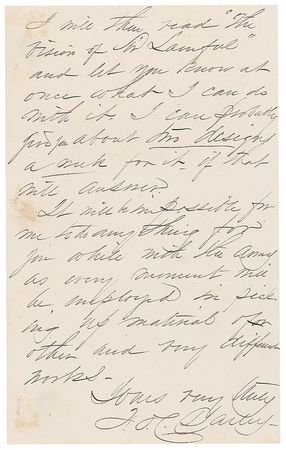 I will then read "The
Vision of Sir Launfal"
and let you know at
once what I can do
with it. I can probably
give you about two designs
a week for it if that
will answer.
It will be impossible for
me to do any thing for
you while with the army
as every moment will
be employed in pick-
ing up material for
other and very different
works-
Yours very truly
F.O.C. Darley-